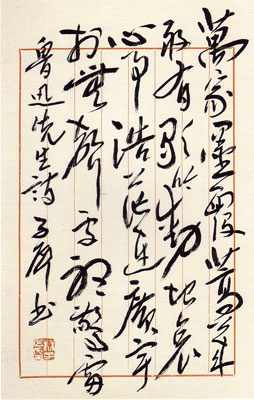 萬家墨面沒蒿萊
敢有歌吟動地哀
心事浩茫連廣宇
於無聲處聽驚雷
魯迅先生詩 書